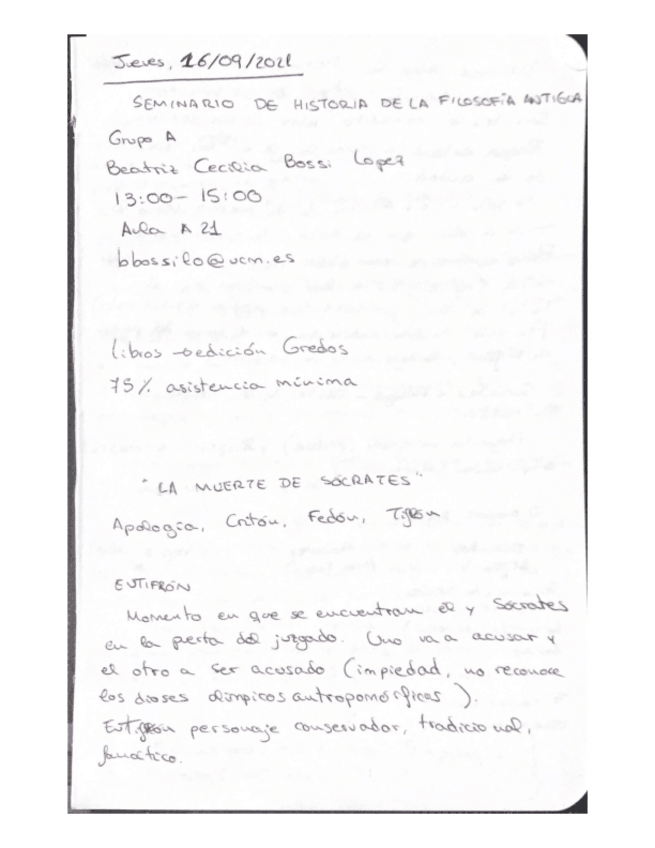 Jueves, 16/09/2021
SEMINARIO DE HISTORIA DE LA FILOSOFÍA ANTIGUA
Grupo A
Beatriz Cecilia Bossi Lopez
13:00 - 15:00
Aula A 21
bbossilo@ucm.es
libros → edición Gredos
75% asistencia mínima
"LA MUERTE DE SÓCRATES"
Apología, Critón, Fedón,
EUTIFRÓN
Momento en que se encuentran el y Sócrates
en la puerta del juzgado. Uno va a acusar y
el otro a ser acusado (impiedad, no reconoce
los dioses olímpicos antropomórficos).
Eutifrón personaje conservador, tradicional,
fanático.